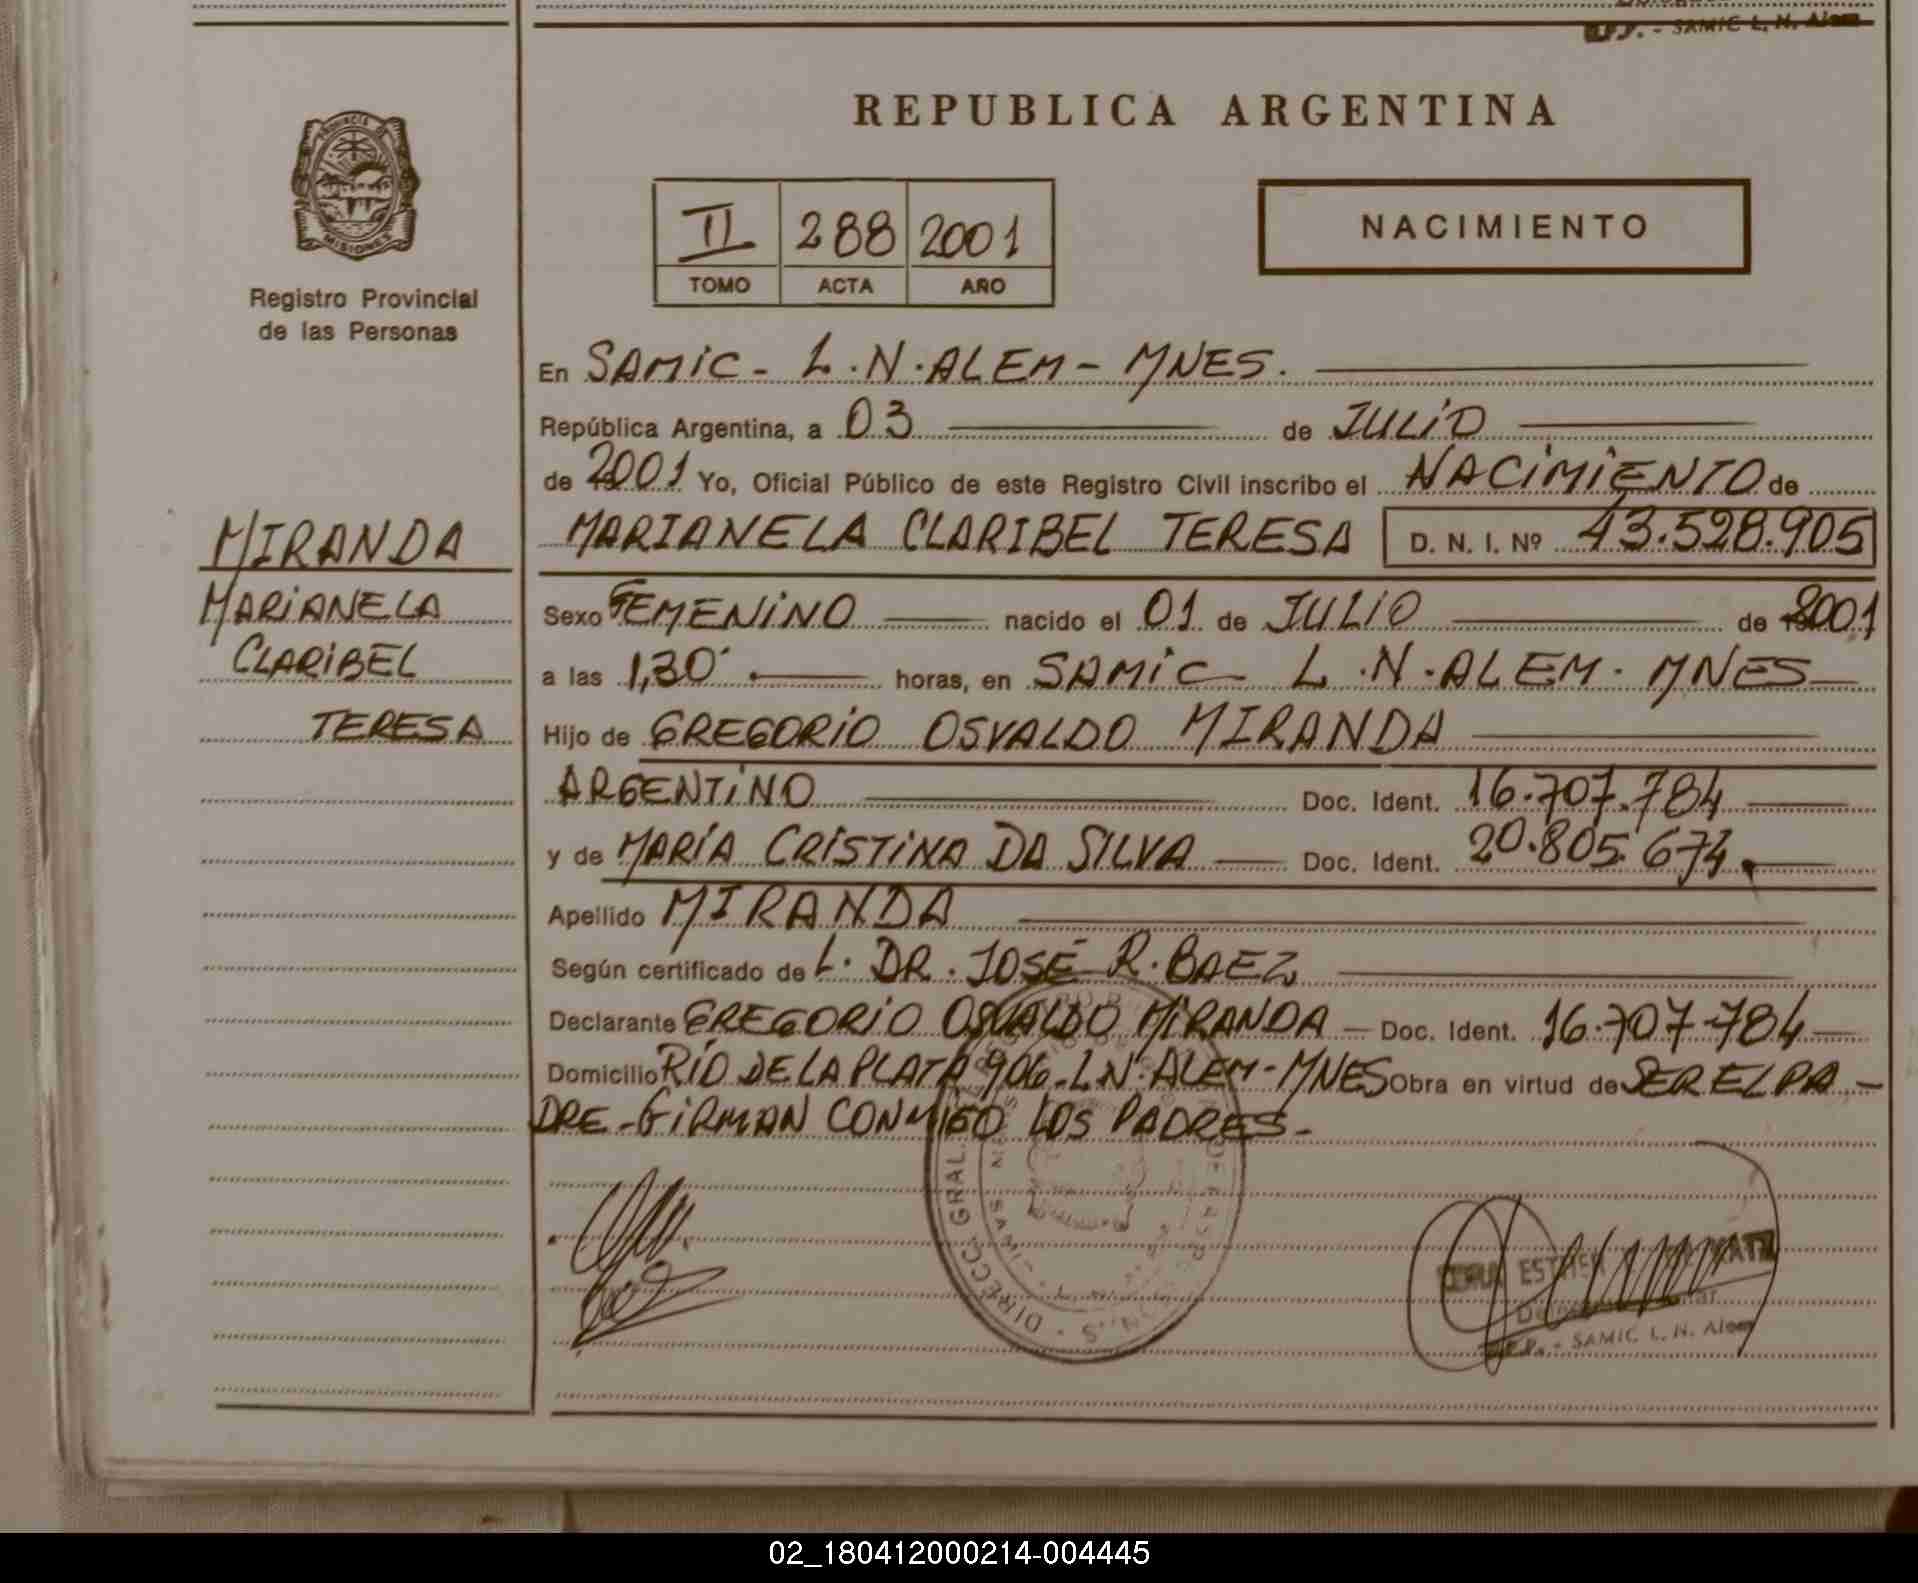 - SAMIC L. N. Alem
PROVINCIA DE
MISIONES
Registro Provincial
de las Personas
REPUBLICA ARGENTINA
II 288 2001
TOMO ACTA AÑO
NACIMIENTO
En SAMIC - L.N. ALEM - MNES.
República Argentina, a 03 de JULIO
de 2001 Yo, Oficial Público de este Registro Civil inscribo el NACIMIENTO de
MARIANELA CLARIBEL TERESA D. N. I. Nº 43.528.905
MIRANDA
MARIANELA
CLARIBEL
TERESA
Sexo FEMENINO nacido el 01 de JULIO de 2001
a las 1,30' horas, en SAMIC L.N. ALEM. MNES
Hijo de GREGORIO OSVALDO MIRANDA
ARGENTINO Doc. Ident. 16.707.784
y de MARÍA CRISTINA DA SILVA Doc. Ident. 20.805.674
Apellido MIRANDA
Según certificado de L. DR. JOSÉ R. BAEZ
Declarante GREGORIO OSVALDO MIRANDA Doc. Ident. 16.707.784
Domicilio RÍO DE LA PLATA 906 - L.N. ALEM - MNES Obra en virtud de SER EL PA-
DRE - FIRMAN CONMIGO LOS PADRES -
DIRECC. GRAL.
- SAMIC L. N. Alem
02_180412000214-004445